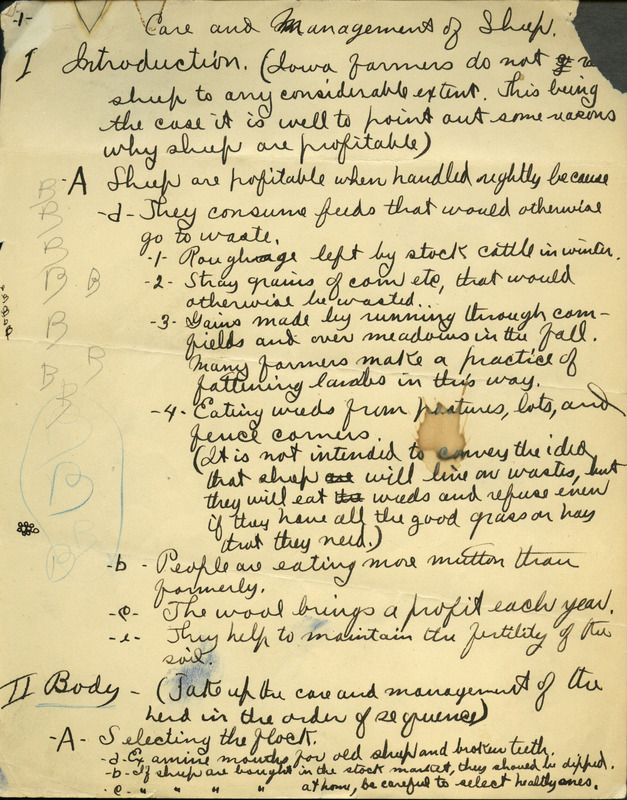 -1-
Care and Management of Sheep.
I Introduction. (Iowa farmers do not
sheep to any considerable extent. This being
the case it is well to point out some reasons
why sheep are profitable)
-A Sheep are profitable when handled rightly because
-a- They consume feeds that would otherwise
go to waste.
-1- Roughage left by stock cattle in winter.
-2- Stray grains of corn etc, that would
otherwise be wasted...
-3- Gains made by running through corn-
fields and over meadows in the fall.
Many farmers make a practice of
fattening lambs in this way.
-4- Eating weeds from pastures, lots, and
fence corners.
(It is not intended to convey the idea
that sheep are will live on wastes, but
they will eat the weeds and refuse even
if they have all the good grass or hay
that they need.)
-b- People are eating more mutton than
formerly.
-c- The wool brings a profit each year.
-e- They help to maintain the fertility of the
soil.
II Body - (Take up the care and management of the
herd in the order of sequence)
-A- Selecting the flock.
-a- Examine mouths for old sheep and broken teeth.
-b- If sheep are bought in the stock market, they should be dipped.
-c- " " " " at home, be careful to select healthy ones.
B
B
B
B B
B
B
B
B
B
B